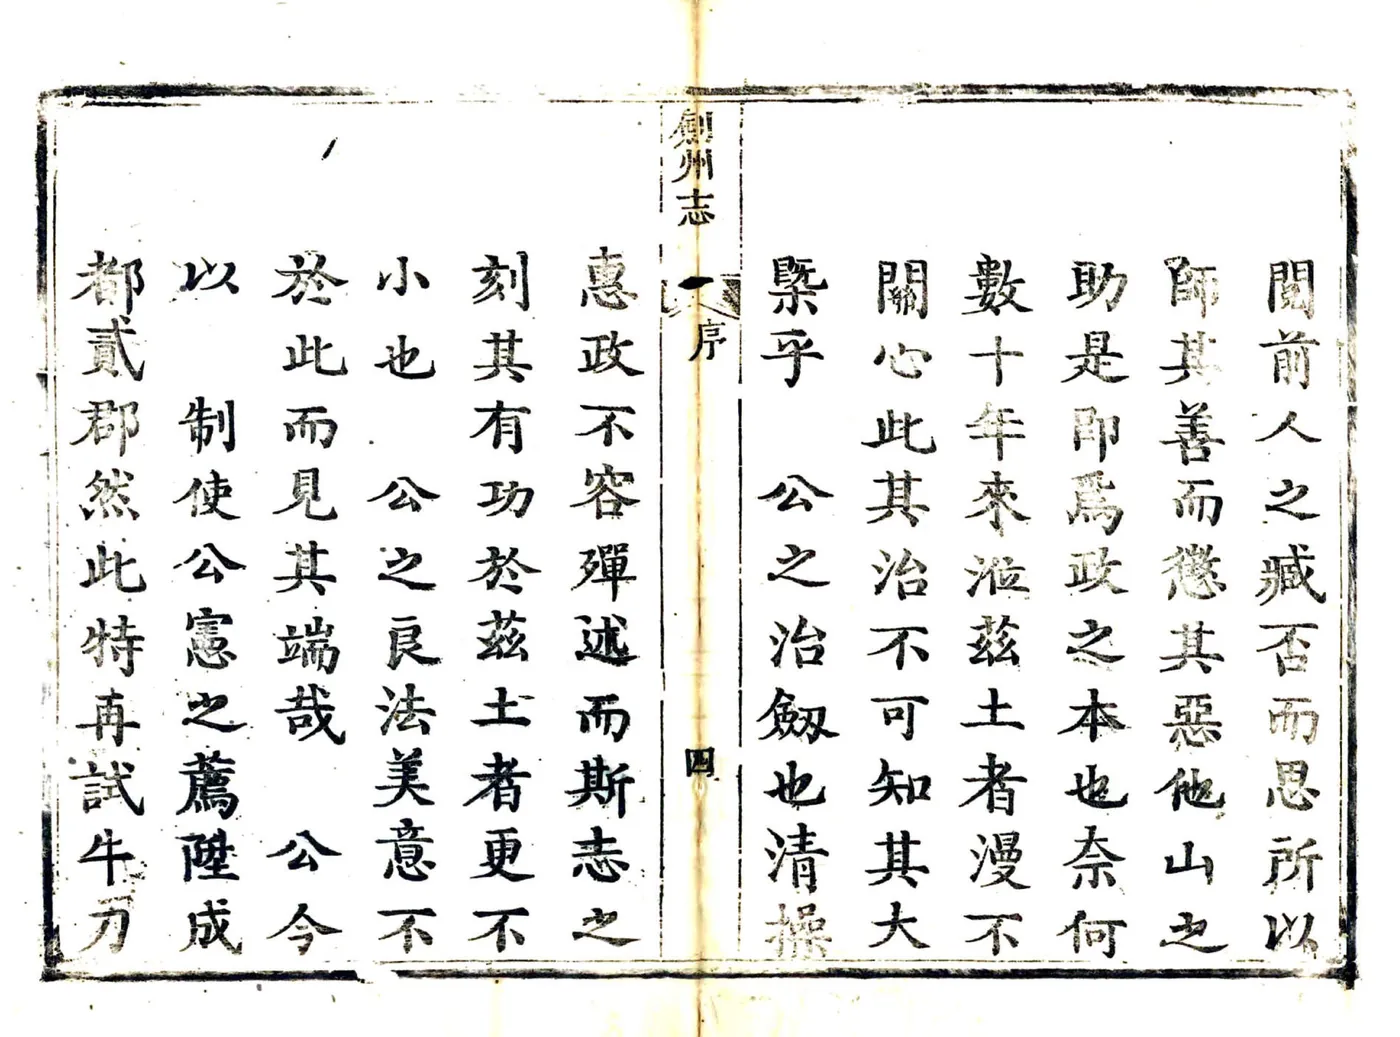 閱前人之臧否而思所以
師其善而懲其惡他山之
助是即爲政之本也奈何
數十年來涖茲土者漫不
關心此其治不可知其大
槩乎　公之治劔也清操
劍州志
序
四
惠政不容殫述而斯志之
刻其有功於茲土者更不
小也　公之良法美意不
於此而見其端哉　公今
以　制使公憲之薦陞成
都貳郡然此特再試牛刀